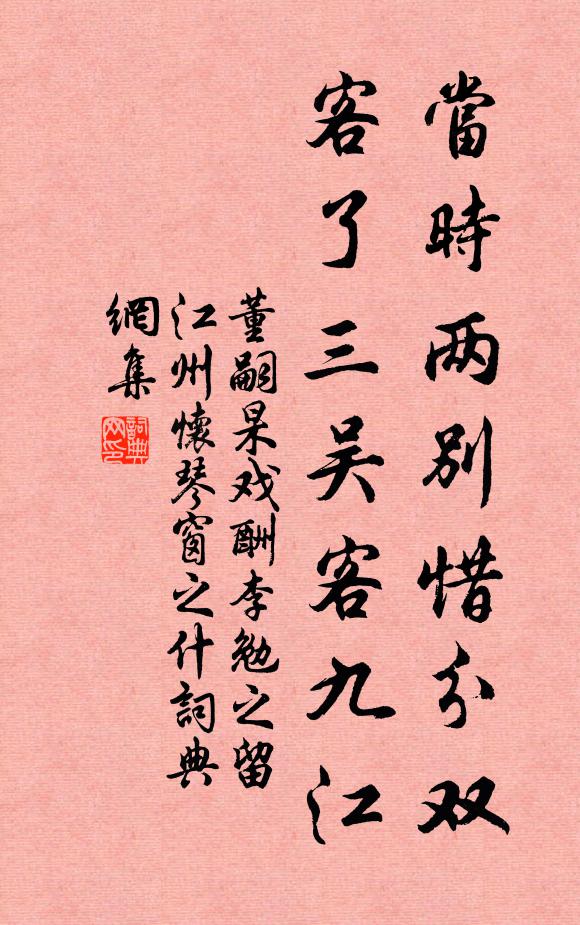 當時两别惜分双
客了三吴客九江
董嗣杲戏酬李勉之留
江州懷琴窗之什詞典
網集
詞典網印